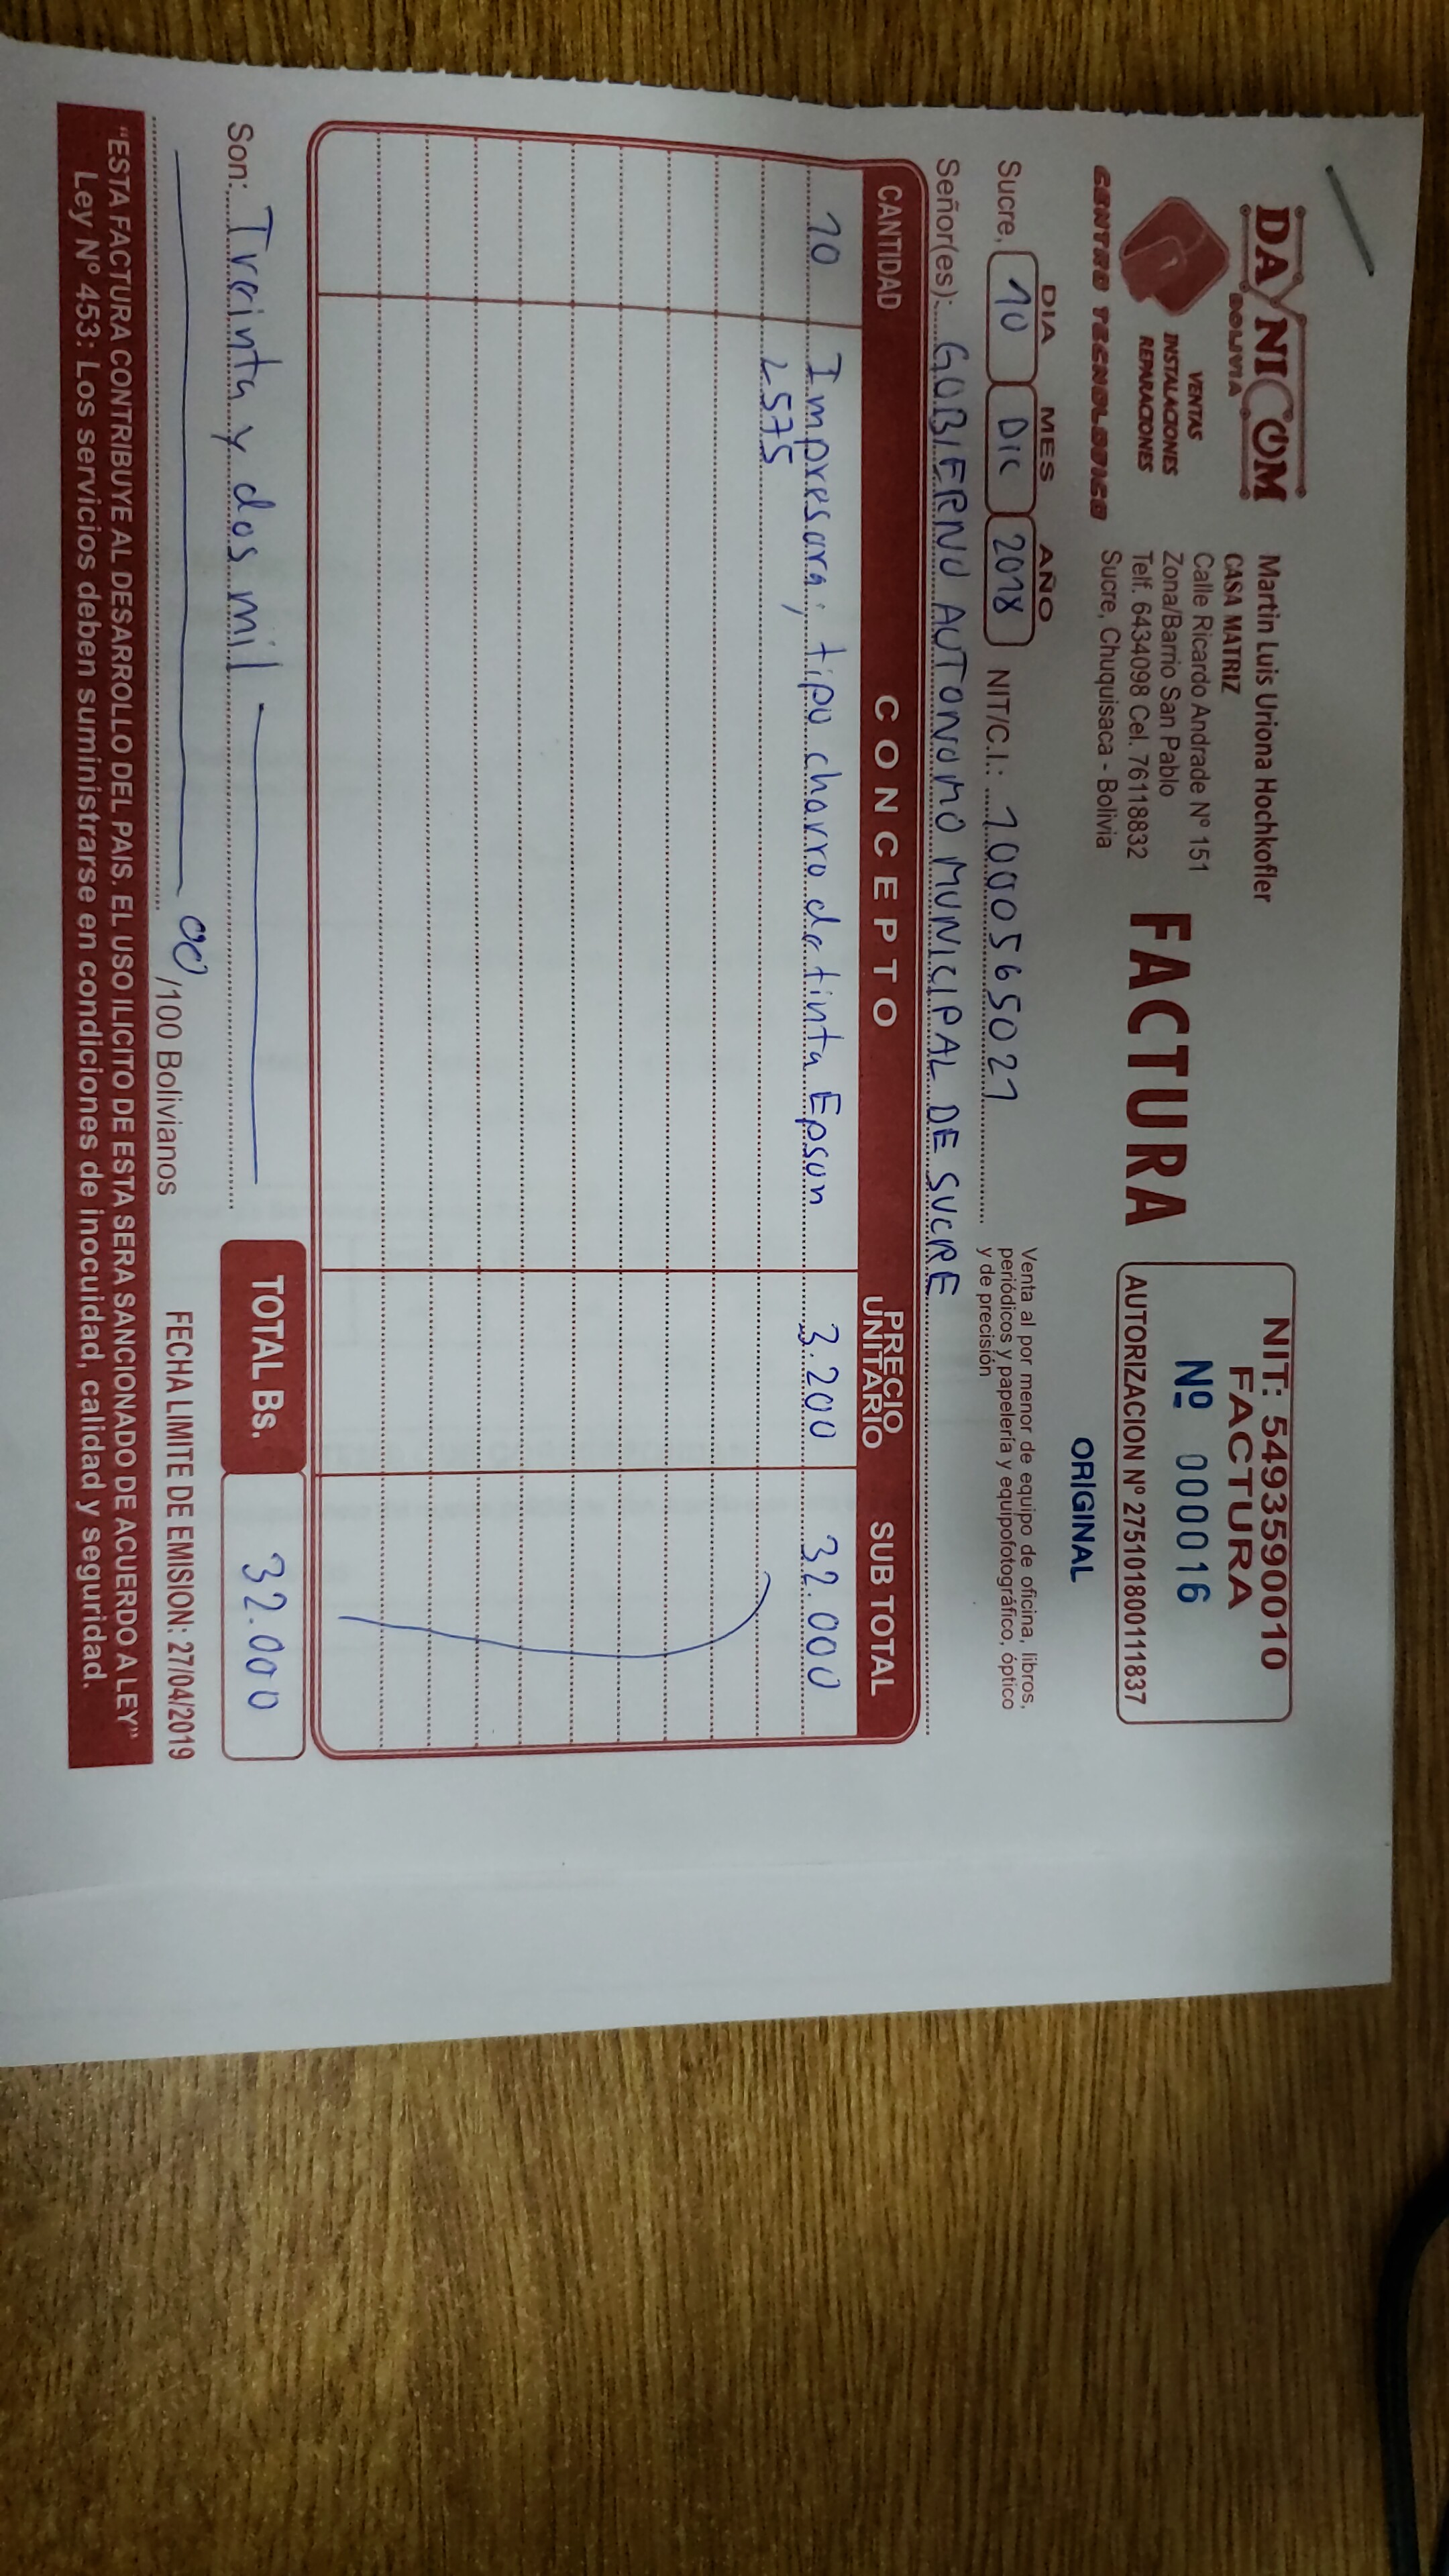 DAYNICOM
BOLIVIA
VENTAS
INSTALACIONES
REPARACIONES
CENTRO TECNOLOGICO
Martin Luis Uriona Hochkofler
CASA MATRIZ
Calle Ricardo Andrade Nº 151
Zona/Barrio San Pablo
Telf. 6434098 Cel. 76118832
Sucre, Chuquisaca - Bolivia
FACTURA
NIT: 5493590010
FACTURA
Nº 000016
AUTORIZACION Nº 275101800111837
ORIGINAL
Venta al por menor de equipo de oficina, libros,
periódicos y papelería y equipofotográfico, óptico
y de precisión
DIA MES AÑO
Sucre, 10 Dic 2018 NIT/C.I.: 1000565021
Señor(es): GOBIERNO AUTONOMO MUNICIPAL DE SUCRE
CANTIDAD CONCEPTO PRECIO UNITARIO SUB TOTAL
10 Impresora; tipo chorro de tinta Epson 3.200 32.000
L575
Son: Treinta y dos mil
TOTAL Bs. 32.000
00/100 Bolivianos
FECHA LIMITE DE EMISION: 27/04/2019
"ESTA FACTURA CONTRIBUYE AL DESARROLLO DEL PAIS. EL USO ILICITO DE ESTA SERA SANCIONADO DE ACUERDO A LEY"
Ley Nº 453: Los servicios deben suministrarse en condiciones de inocuidad, calidad y seguridad.